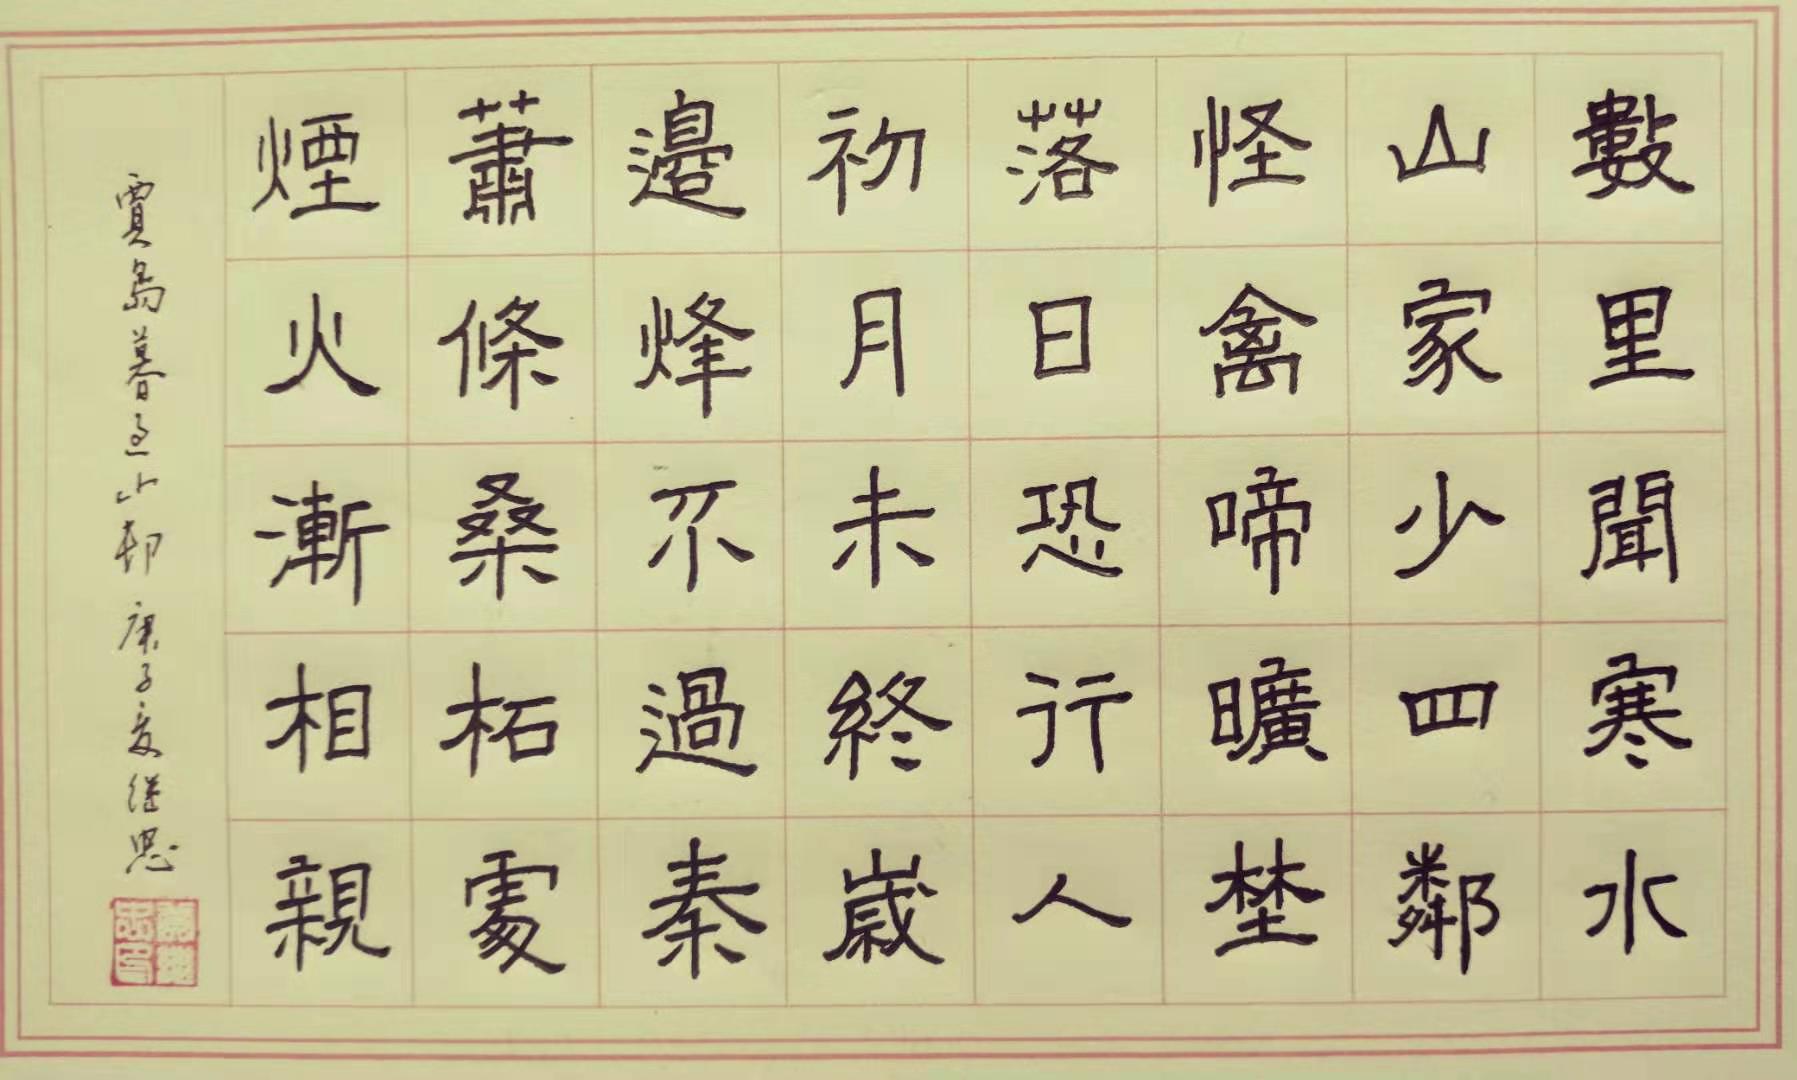 數里聞寒水
山家少四鄰
怪禽啼曠埜
落日恐行人
初月未終歲
邉烽不過秦
蕭條桑柘處
煙火漸相親
賈島暮過山邨 庚子夏继思